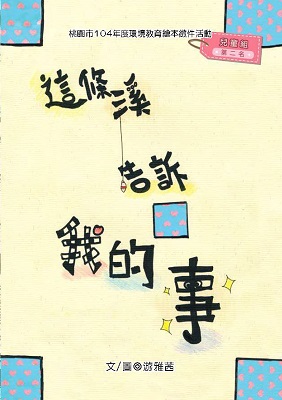 桃園市104年度環境教育繪本徵件活動
兒童組
第二名
這條溪
告訴
我的
事
文/圖◎游雅茜